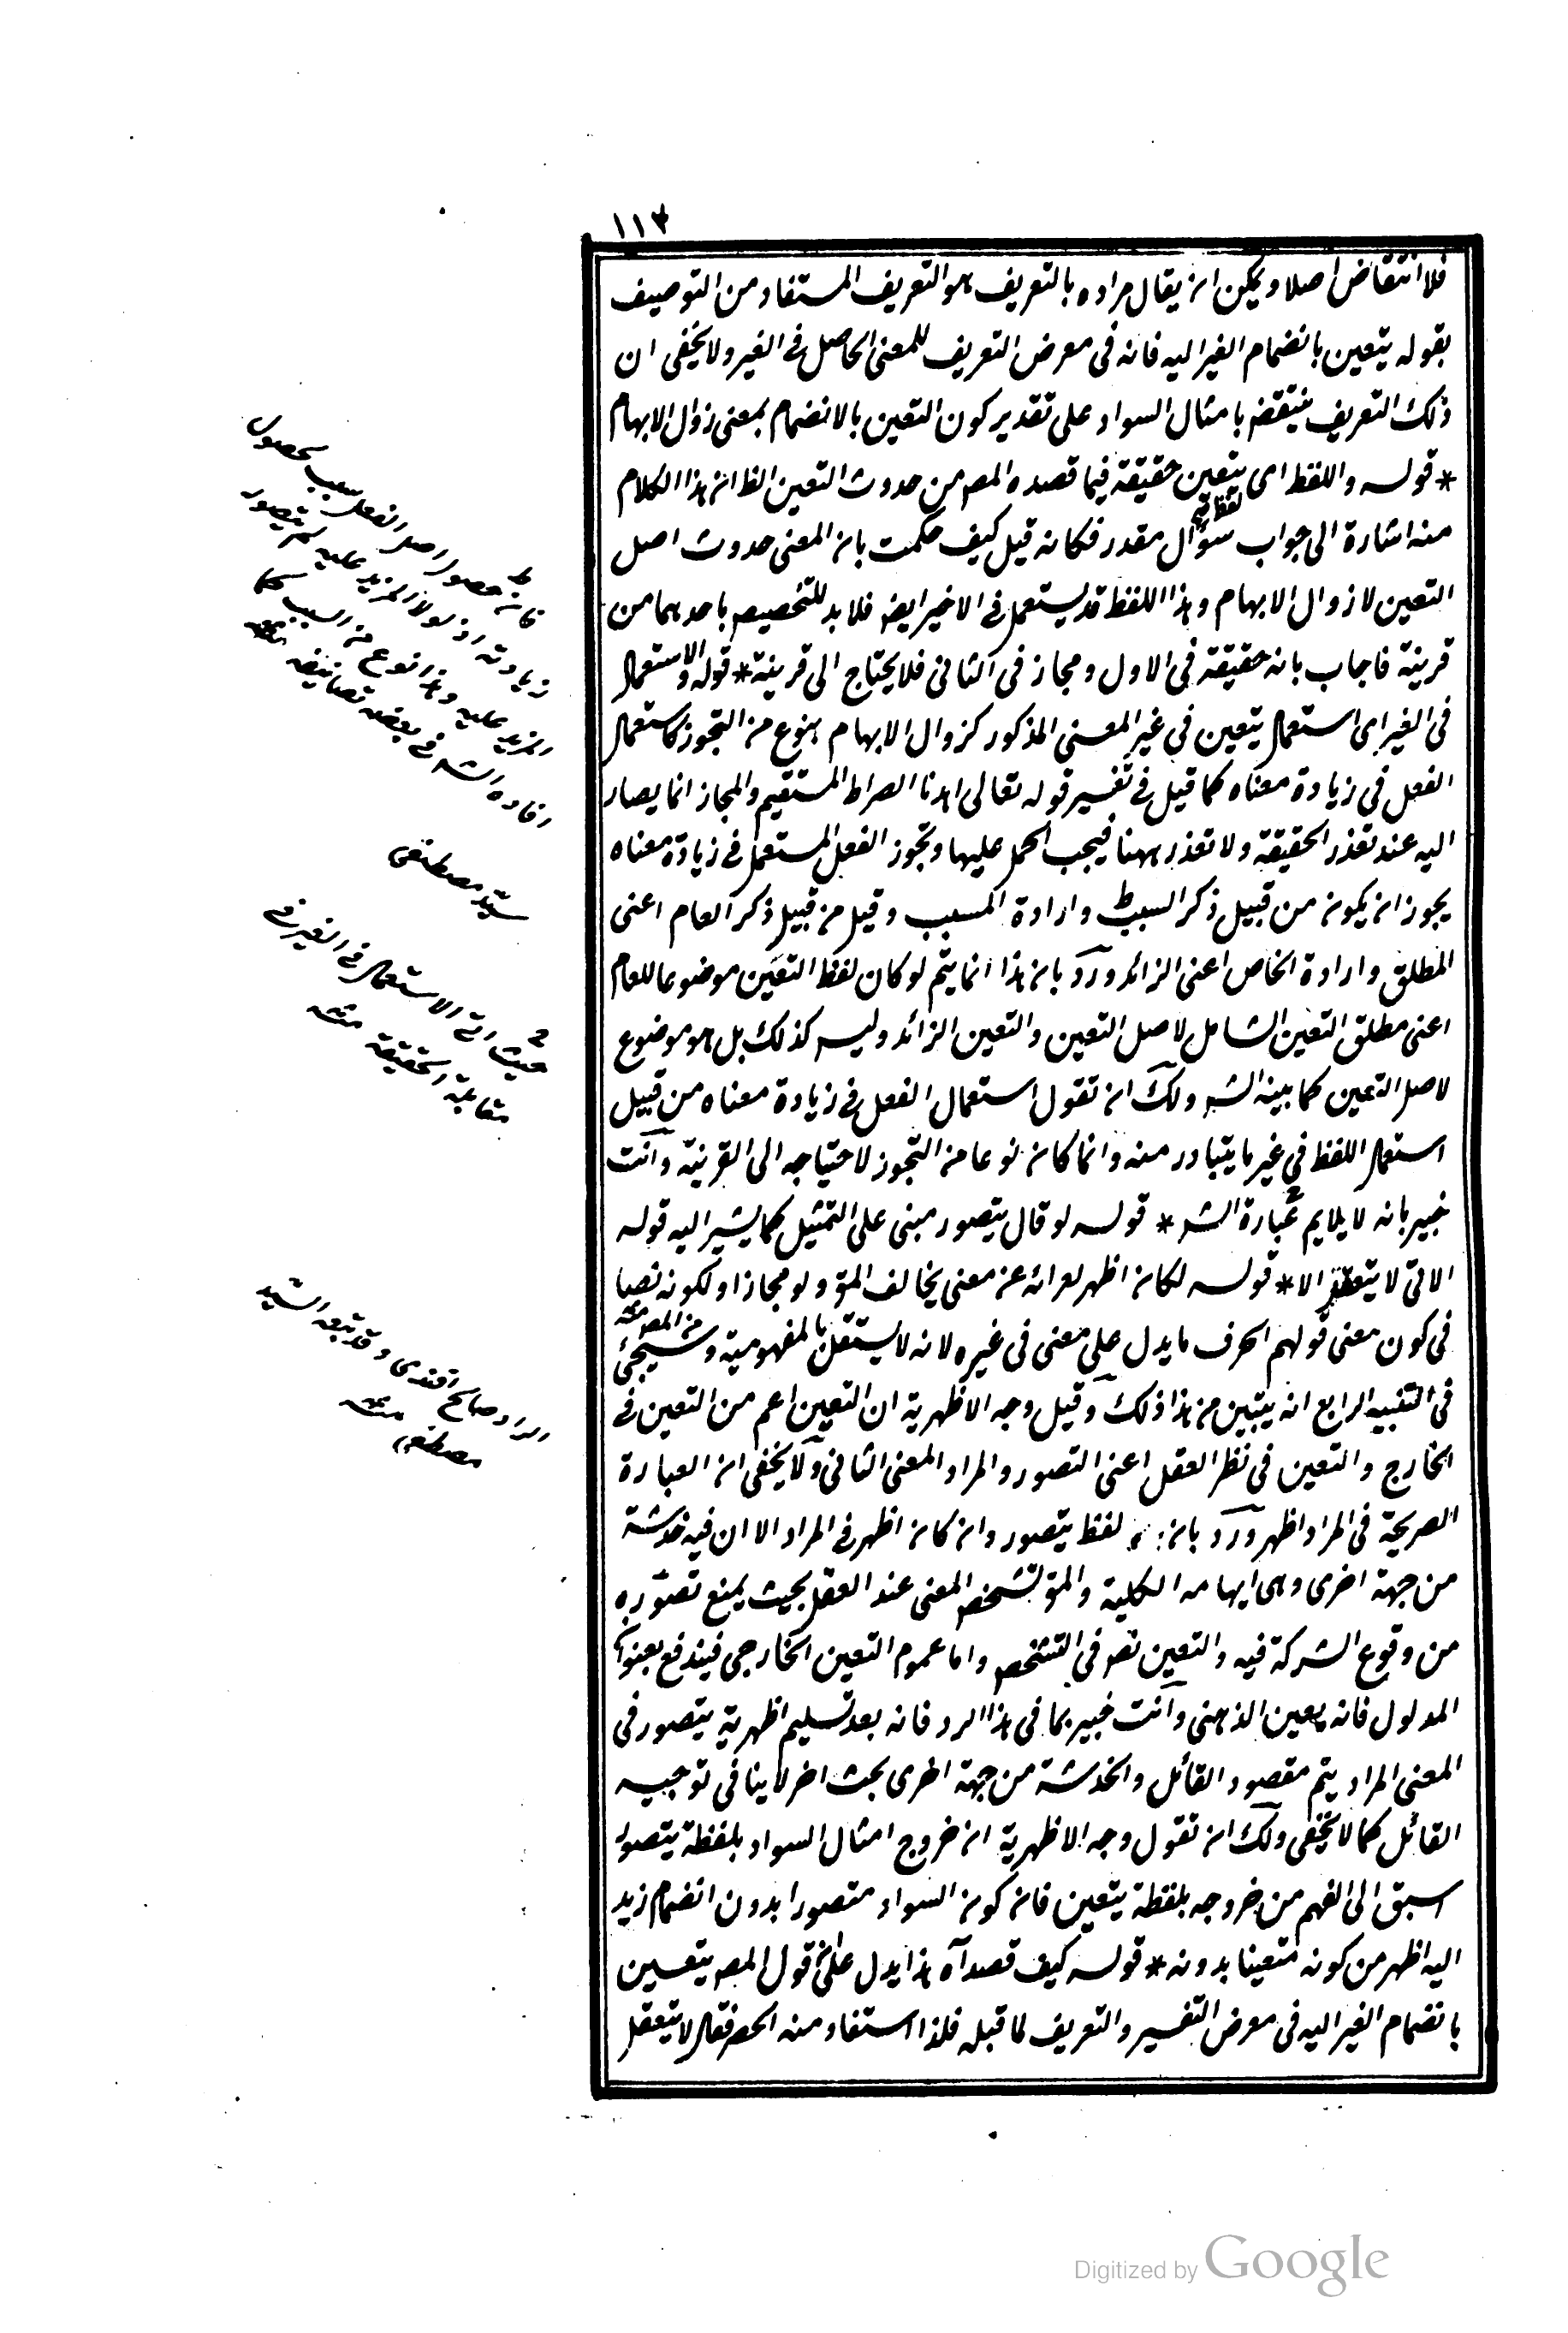 ١١٣
فلا انتقاض اصلا ويمكن ان يقال مراده بالتعريف هو التعريف المستفاد من التوصيف
بقوله يتعين بانضمام الغير اليه فانه فى معرض التعريف للمعنى الحاصل فى الغير ولا يخفى ان
ذلك التعريف ينتقض بامثال السواد على تقدير كون التعين بالانضمام بمعنى زوال الابهام
* قوله واللفظ اى يتعين حقيقة فيما قصده المص من حدوث التعين الظ ان هذا الكلام
منه اشارة الى جواب سؤال مقدر فكانه قيل كيف حكمت بان المعنى حدوث اصل
التعين لا زوال الابهام وهذا اللفظ قد يستعمل فى الاخير ايض فلا بد للتخصيص باحدهما من
قرينة فاجاب بانه حقيقة فى الاول ومجاز فى الثانى فلا يحتاج الى قرينة * قوله والاستعمال
فى الغير اى استعمال يتعين فى غير المعنى المذكور كزوال الابهام بنوع من التجوز كاستعمال
الفعل فى زيادة معناه كما قيل فى تفسير قوله تعالى اهدنا الصراط المستقيم والمجاز انما يصار
اليه عند تعذر الحقيقة ولا تعذر ههنا فيجب الحمل عليها وتجوز الفعل المستعمل فى زيادة معناه
يجوز ان يكون من قبيل ذكر السبب وارادة المسبب وقيل من قبيل ذكر العام اعنى
المطلق وارادة الخاص اعنى الزائد ورد بان هذا انما يتم لو كان لفظ التعين موضوعا للعام
اعنى مطلق التعين الشامل لاصل التعين والتعين الزائد وليس كذلك بل هو موضوع
لاصل التعين كما بينه الش ولك ان تقول استعمال الفعل فى زيادة معناه من قبيل
استعمال اللفظ فى غير ما يتبادر منه وانما كان نوعا من التجوز لاحتياجه الى القرينة وانت
خبير بانه لا يلايم عبارة الش * قوله لو قال يتصور مبنى على التمثيل كما يشير اليه قوله
الاتى لا يتعقل الا * قوله لكان اظهر لعرائه عن معنى يخالف المق ولو مجازا او لكونه نصا
فى كون معنى قولهم الحرف ما يدل على معنى فى غيره لانه لا يستقل بالمفهومية وسيجئ
فى التنبيه الرابع انه يتبين من هذا ذلك وقيل وجه الاظهرية ان التعين اعم من التعين فى
الخارج والتعين فى نظر العقل اعنى التصور والمراد المعنى الثانى ولا يخفى ان العبارة
الصريحة فى المراد اظهر ورد بان لفظ يتصور وان كان اظهر فى المراد الا ان فيه خدشة
من جهة اخرى وهى ايهامه الكلية والمق تشخص المعنى عند العقل بحيث يمنع تصوره
من وقوع الشركة فيه والتعين نص فى التشخص واما عموم التعين الخارجى فيندفع بعنوان
المدلول فانه يعين الذهنى وانت خبير بما فى هذا الرد فانه بعد تسليم اظهرية يتصور فى
المعنى المراد يتم مقصود القائل والخدشة من جهة اخرى بحث اخر لا ينافى توجيه
القائل كما لا يخفى ولك ان تقول وجه الاظهرية ان خروج امثال السواد بلفظة يتصور
اسبق الى الفهم من خروجه بلفظة يتعين فان كون السواد متصورا بدون انضمام زيد
اليه اظهر من كونه متعينا بدونه * قوله كيف قصداه هذا يدل على ان قول المص يتعين
بانضمام الغير اليه فى معرض التفسير والتعريف لما قبله فلذا استفاد منه الحصر فقال لا يتعقل
فان حصول اصل الفعل سبب لحصول
زيادته اذ لولا المزيد عليه لم يتصور
المزيد عليه وهذا نوع من السبب كما
افاده الش فى بعض تصانيفه
سيد مصطفى
حيث اتى الاستعمال فى الغير فى
مقابلة الحقيقة منه
المراد صالح افندى وقد تبعه السيد
مصطفى منه
Digitized by Google